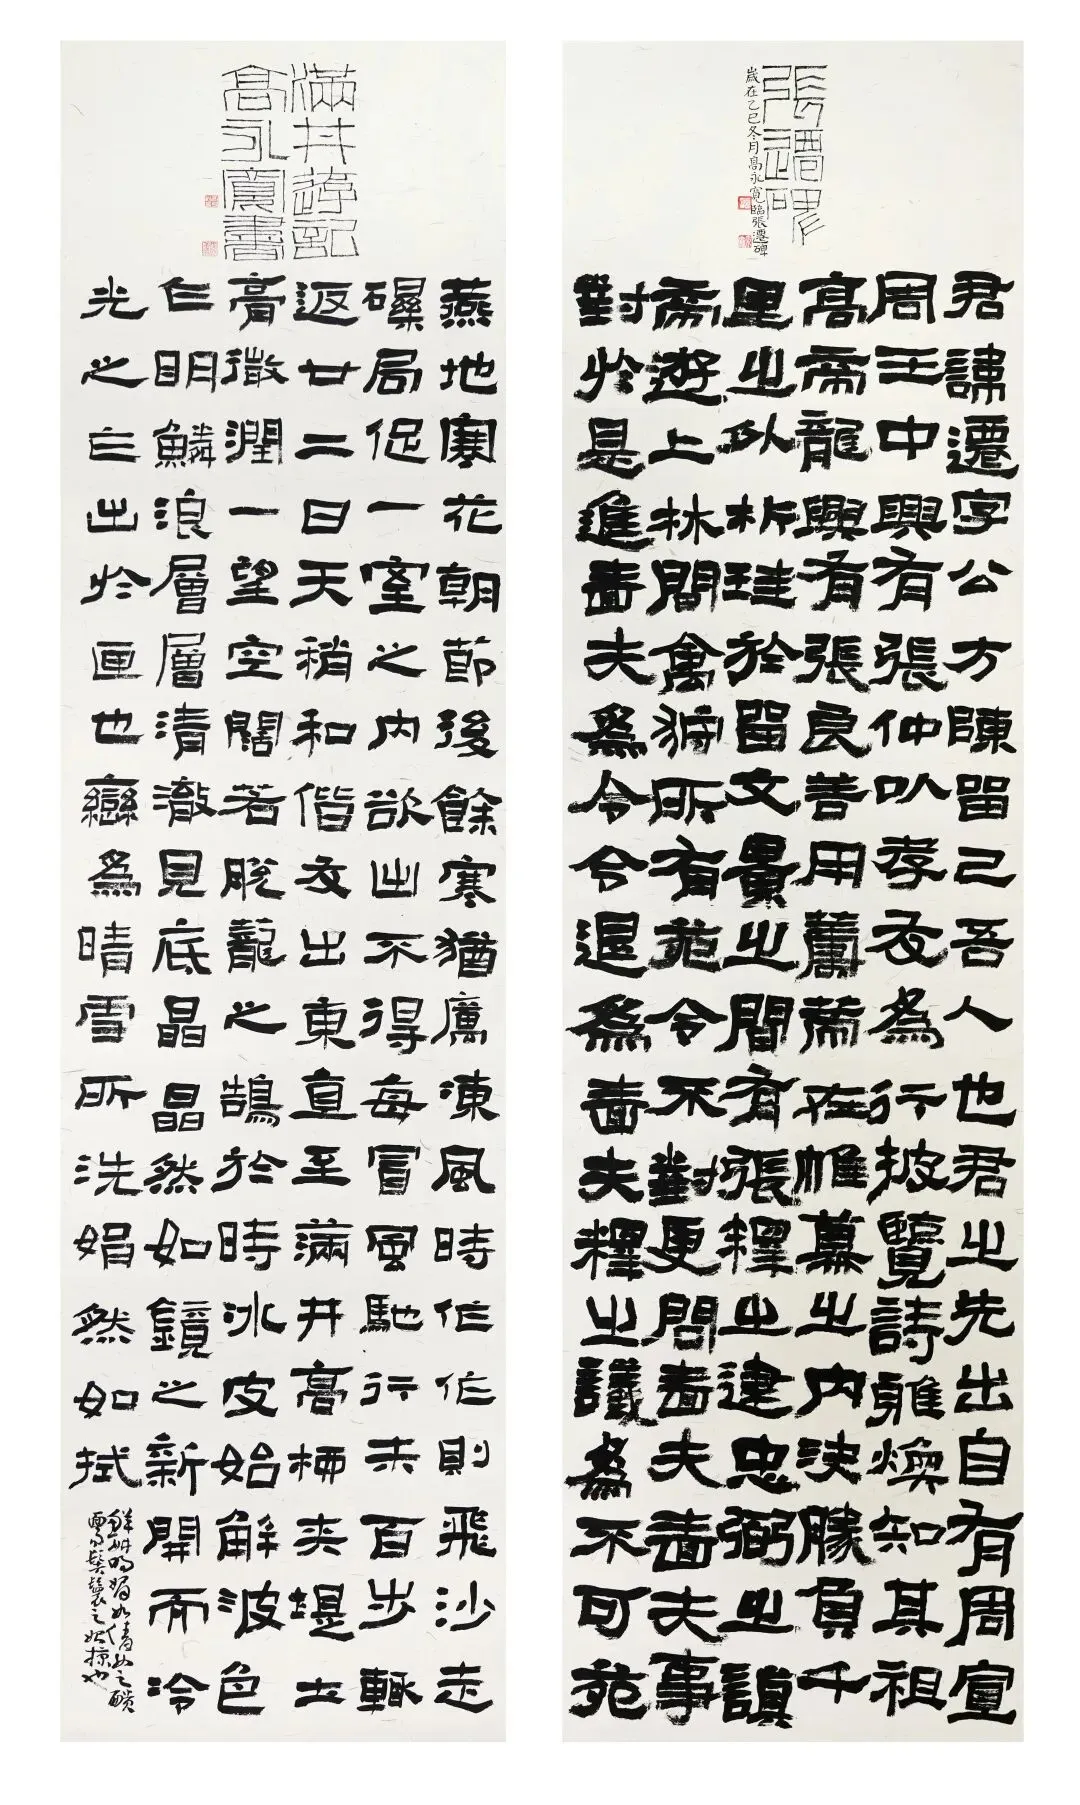 張遷碑
歲在乙巳冬月高永寬臨張遷碑
君諱遷字公方陳留己吾人也君之先出自有周宣
周王中興有張仲以孝友為行披覽詩雅煥知其祖
高帝龍興有張良善用籌策在帷幕之內決勝負千
里之外析珪於留文景之間有張釋之建忠弼之謨
帝遊上林問禽狩所有苑令不對更問嗇夫嗇夫事
對於是進嗇夫為令令退為嗇夫釋之議為不可苑
滿井遊記
高永寬書
燕地寒花朝節後餘寒猶厲凍風時作作則飛沙走
礫局促一室之內欲出不得每冒風馳行未百步輒
返廿二日天稍和偕友出東直至滿井高柳夾堤土
膏微潤一望空闊若脫籠之鵠於時冰皮始解波色
乍明鱗浪層層清澈見底晶晶然如鏡之新開而冷
光之乍出於匣也巒為晴雪所洗娟然如拭
鮮妍明媚如倩女之靧
髻鬟之始掠也